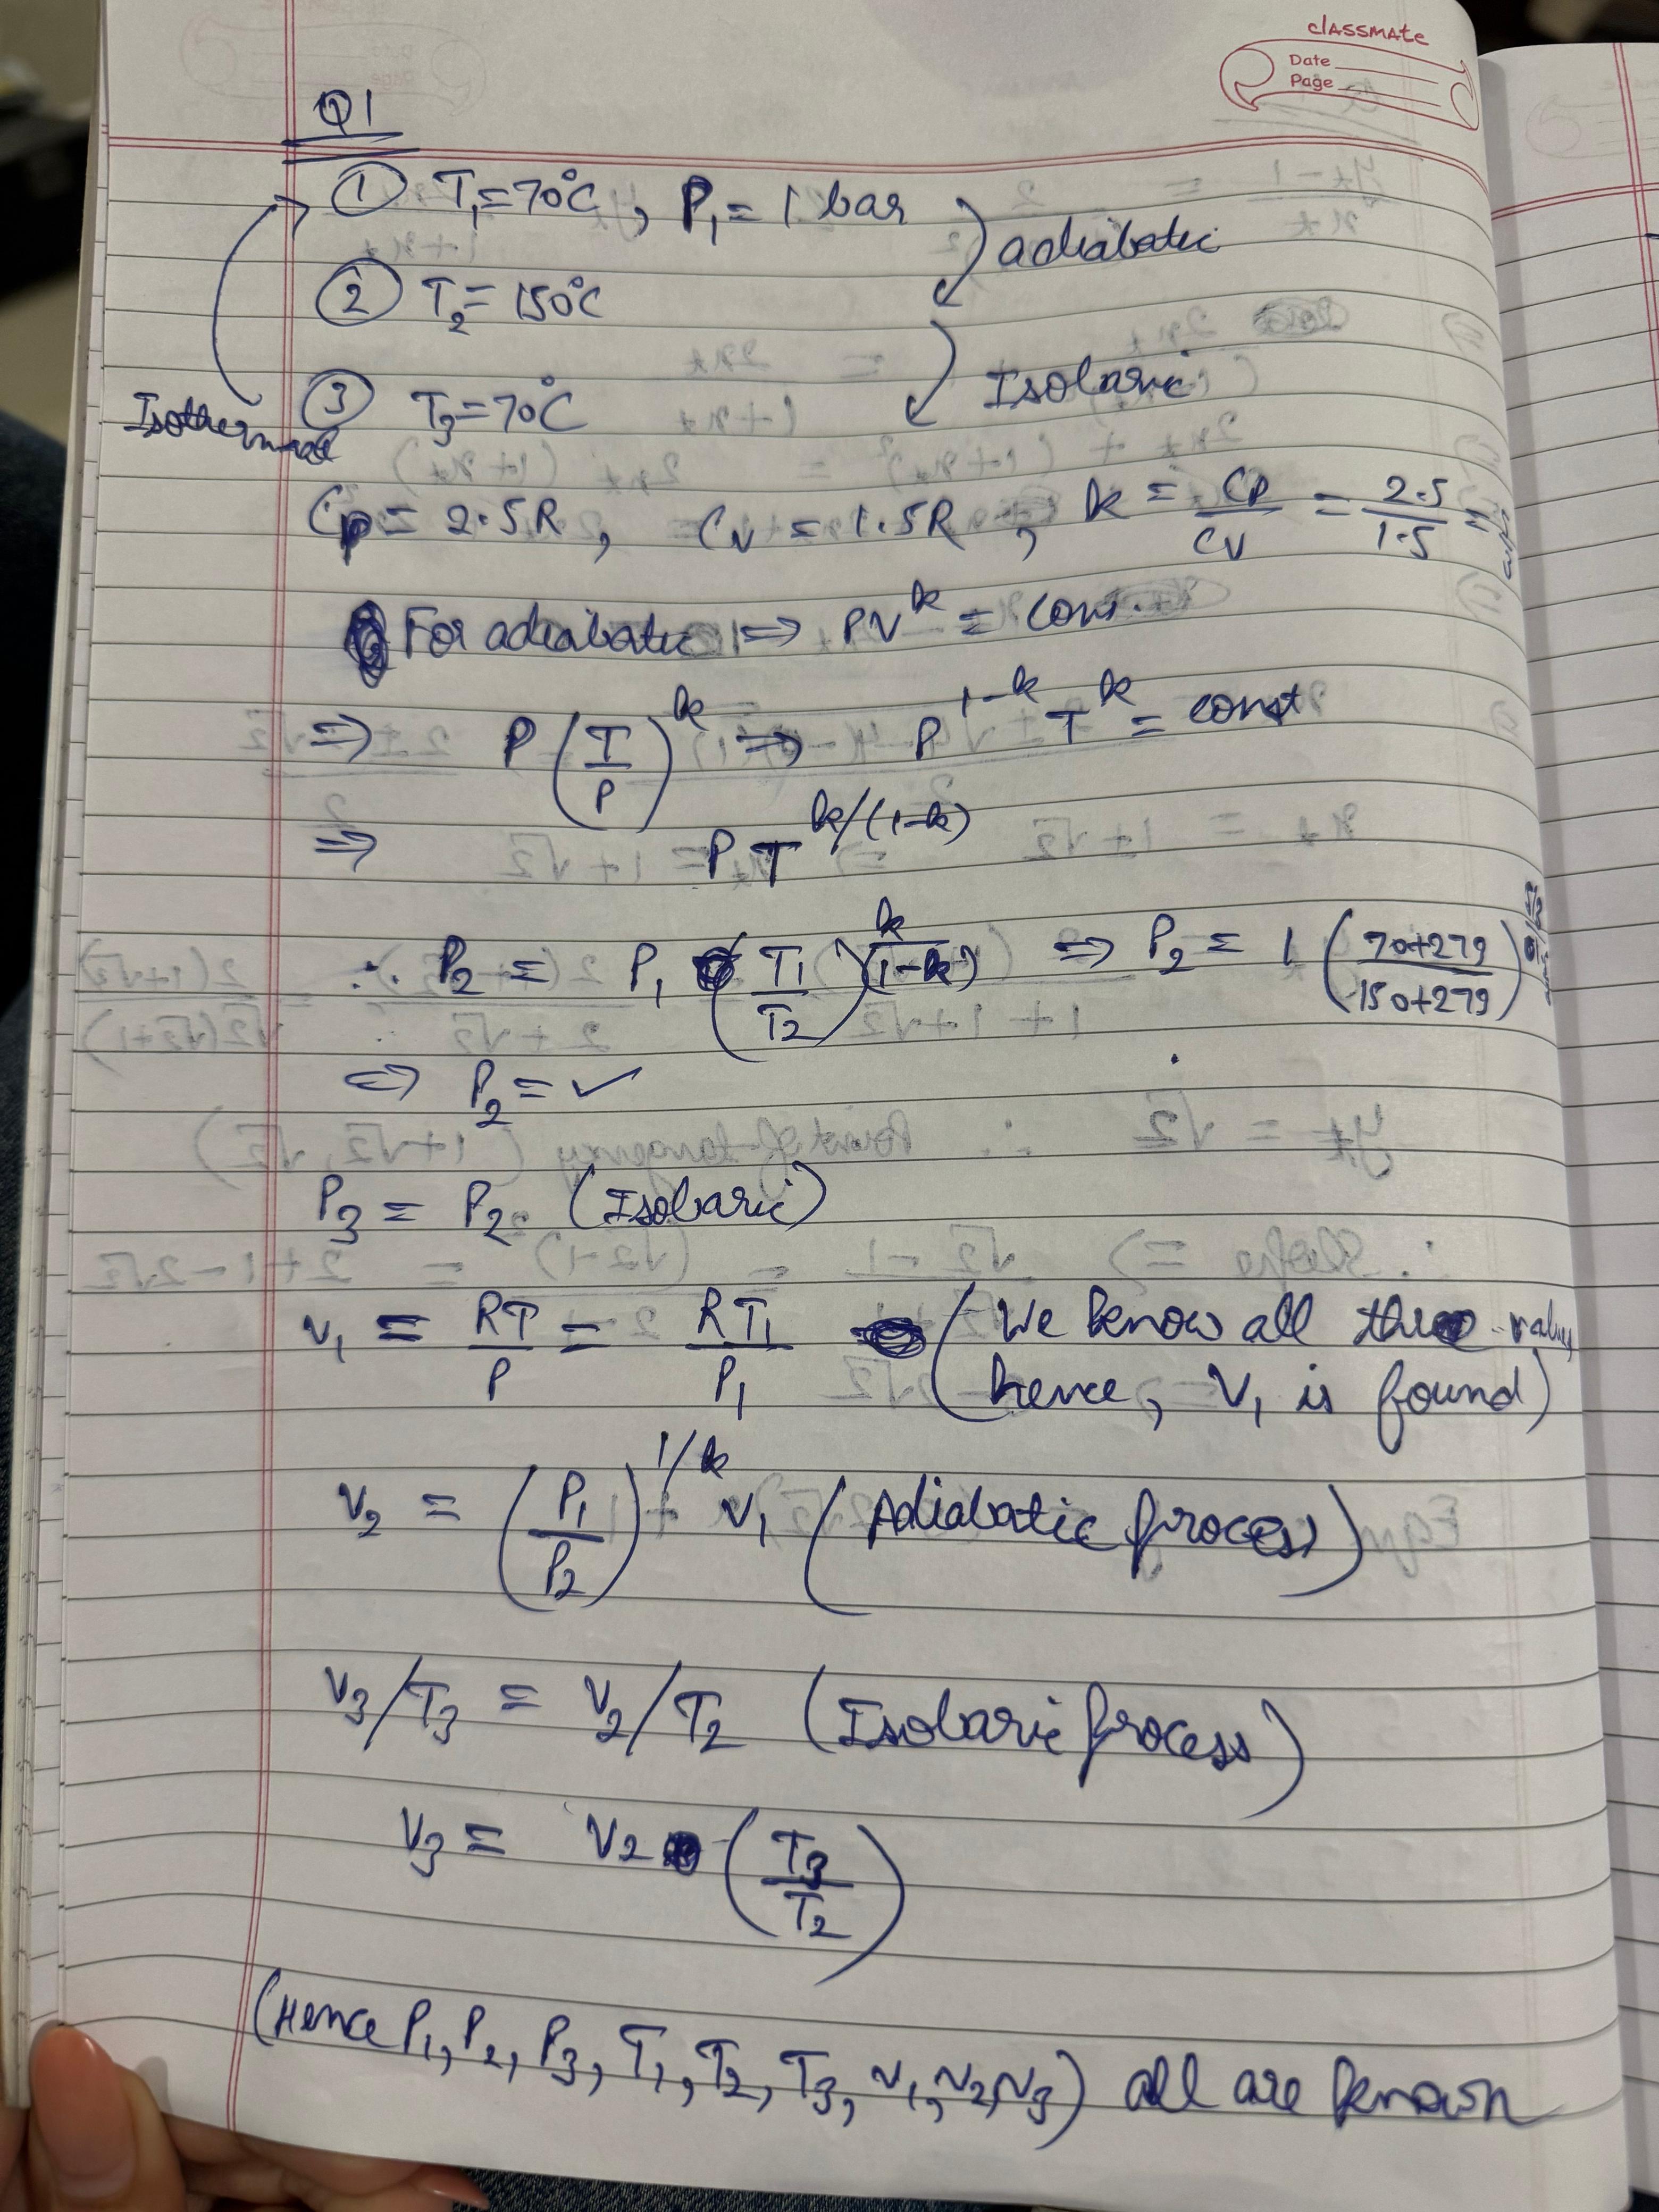 classmate
Date
Page
Q1
① T₁ = 70°C, P₁ = 1 bar
adiabatic
② T₂ = 150°C
Isobaric
③ T₃ = 70°C
Isothermal
Cp = 2.5R, Cv = 1.5R, k = Cp/Cv = 2.5/1.5 = 5/3
For adiabatic ⇒ PV^k = cons.
⇒ P(T/P)^k ⇒ P^(1-k) T^k = const
⇒ PT^(k/(1-k))
∴ P₂ = P₁ (T₁/T₂)^(k/(1-k)) ⇒ P₂ = 1 ((70+279)/(150+279))
⇒ P₂ = ✓
P₃ = P₂ (Isobaric)
v₁ = RT/P = RT₁/P₁ (We know all the values
hence, V₁ is found)
V₂ = (P₁/P₂)^(1/k) V₁ (Adiabatic process)
V₃/T₃ = V₂/T₂ (Isobaric process)
V₃ = V₂ (T₃/T₂)
(Hence P₁, P₂, P₃, T₁, T₂, T₃, v₁, v₂, v₃) all are known